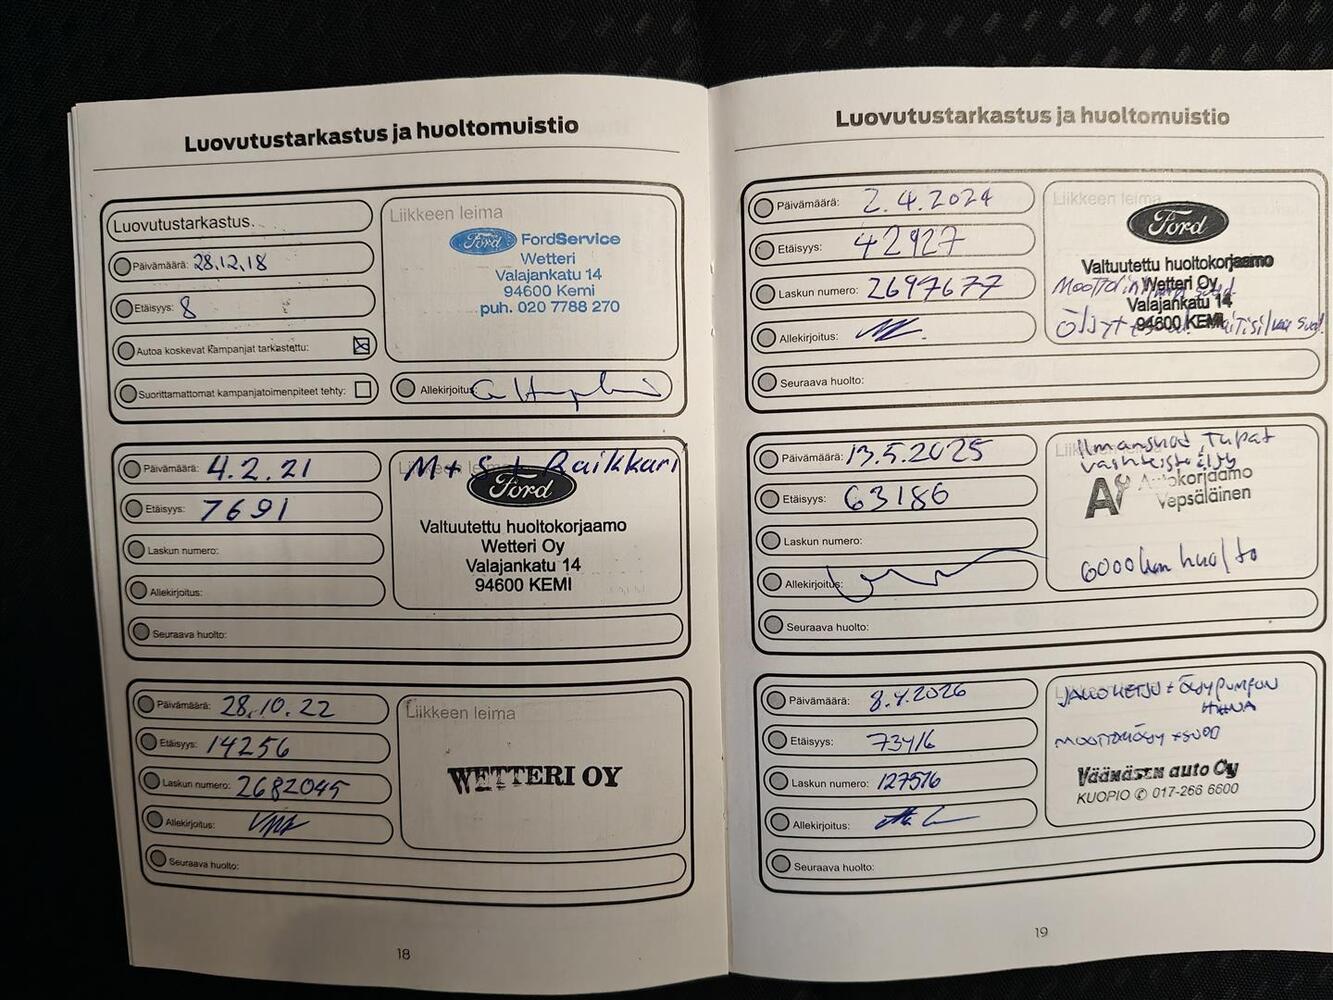 Luovutustarkastus ja huoltomuistio
Luovutustarkastus.
Päivämäärä: 28.12.18
Etäisyys: 8
Autoa koskevat kampanjat tarkastettu:
Suorittamattomat kampanjatoimenpiteet tehty:
Liikkeen leima
Ford FordService
Wetteri
Valajankatu 14
94600 Kemi
puh. 020 7788 270
Allekirjoitus:
Päivämäärä: 4.2.21
Etäisyys: 7691
Laskun numero:
Allekirjoitus:
Seuraava huolto:
Liikkeen leima
M + S + Raikkari
Ford
Valtuutettu huoltokorjaamo
Wetteri Oy
Valajankatu 14
94600 KEMI
Päivämäärä: 28.10.22
Etäisyys: 14256
Laskun numero: 2682045
Allekirjoitus:
Seuraava huolto:
Liikkeen leima
WETTERI OY
18
Luovutustarkastus ja huoltomuistio
Päivämäärä: 2.4.2024
Etäisyys: 42927
Laskun numero: 2697677
Allekirjoitus:
Seuraava huolto:
Liikkeen leima
Ford
Valtuutettu huoltokorjaamo
Wetteri Oy
Valajankatu 14
94600 KEMI
Päivämäärä: 13.5.2025
Etäisyys: 63186
Laskun numero:
Allekirjoitus:
Seuraava huolto:
Ilmansuod, Tulpat
Autokorjaamo
Vepsäläinen
6000 km huolto
Päivämäärä: 8.4.2026
Etäisyys: 73416
Laskun numero: 127516
Allekirjoitus:
Seuraava huolto:
JAKOKETJU + ÖLJYPUMPUN
HIHNA
MOOTTORIÖLJY + SUOD
Väänäsen auto Oy
KUOPIO ✆ 017-266 6600
19